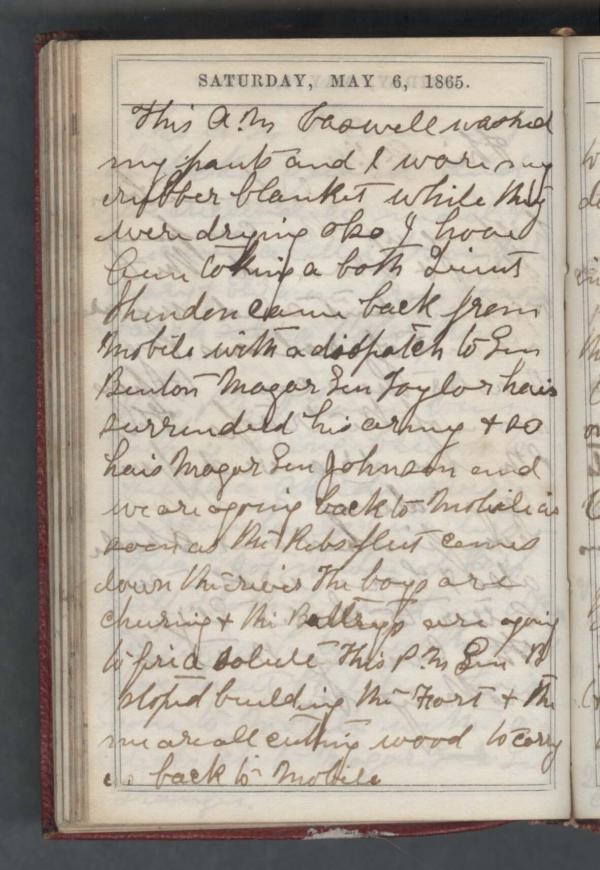 SATURDAY, MAY 6, 1865.
This A.M Caswell washed
my pants and I ware my
rubber blanket while they
were drying also I have
been taking a bath Lieut
came back from
Mobile with a dispatch to Gen
Benton Magor Gen Taylor hais
surrended his army & so
hais Magor Gen Johnson and
we are agoing back to Mobile as
soon as the Rebs fleet comes
down the river The boys are
chearing & the Battrys are agoing
to frie a solute This P.M Gen B
stoped building the Fort & the
me are all cutting wood to carry
us back to Mobile